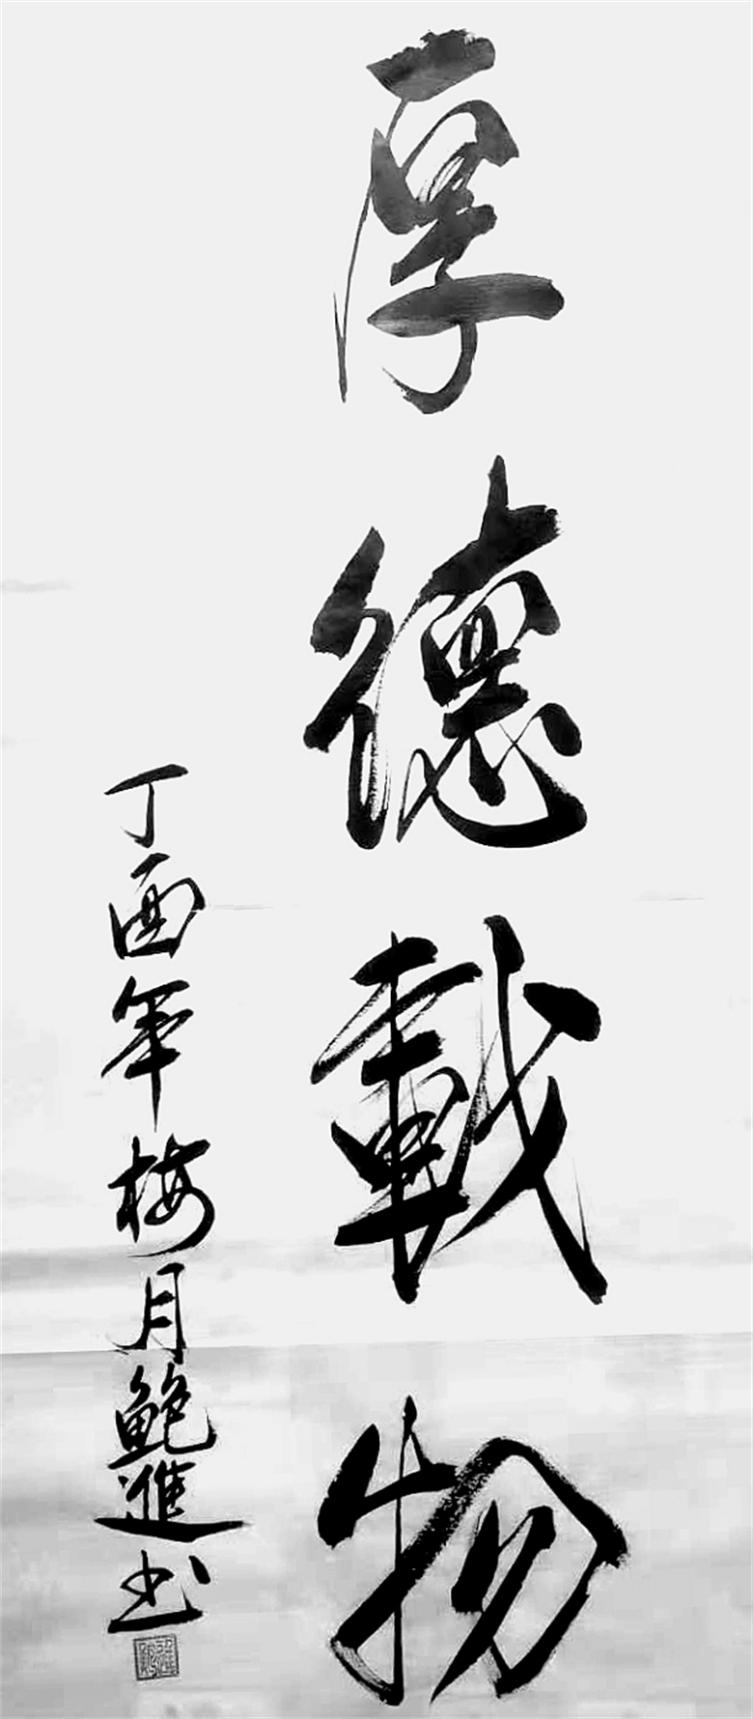 厚德載物
丁酉年梅月鮑進书